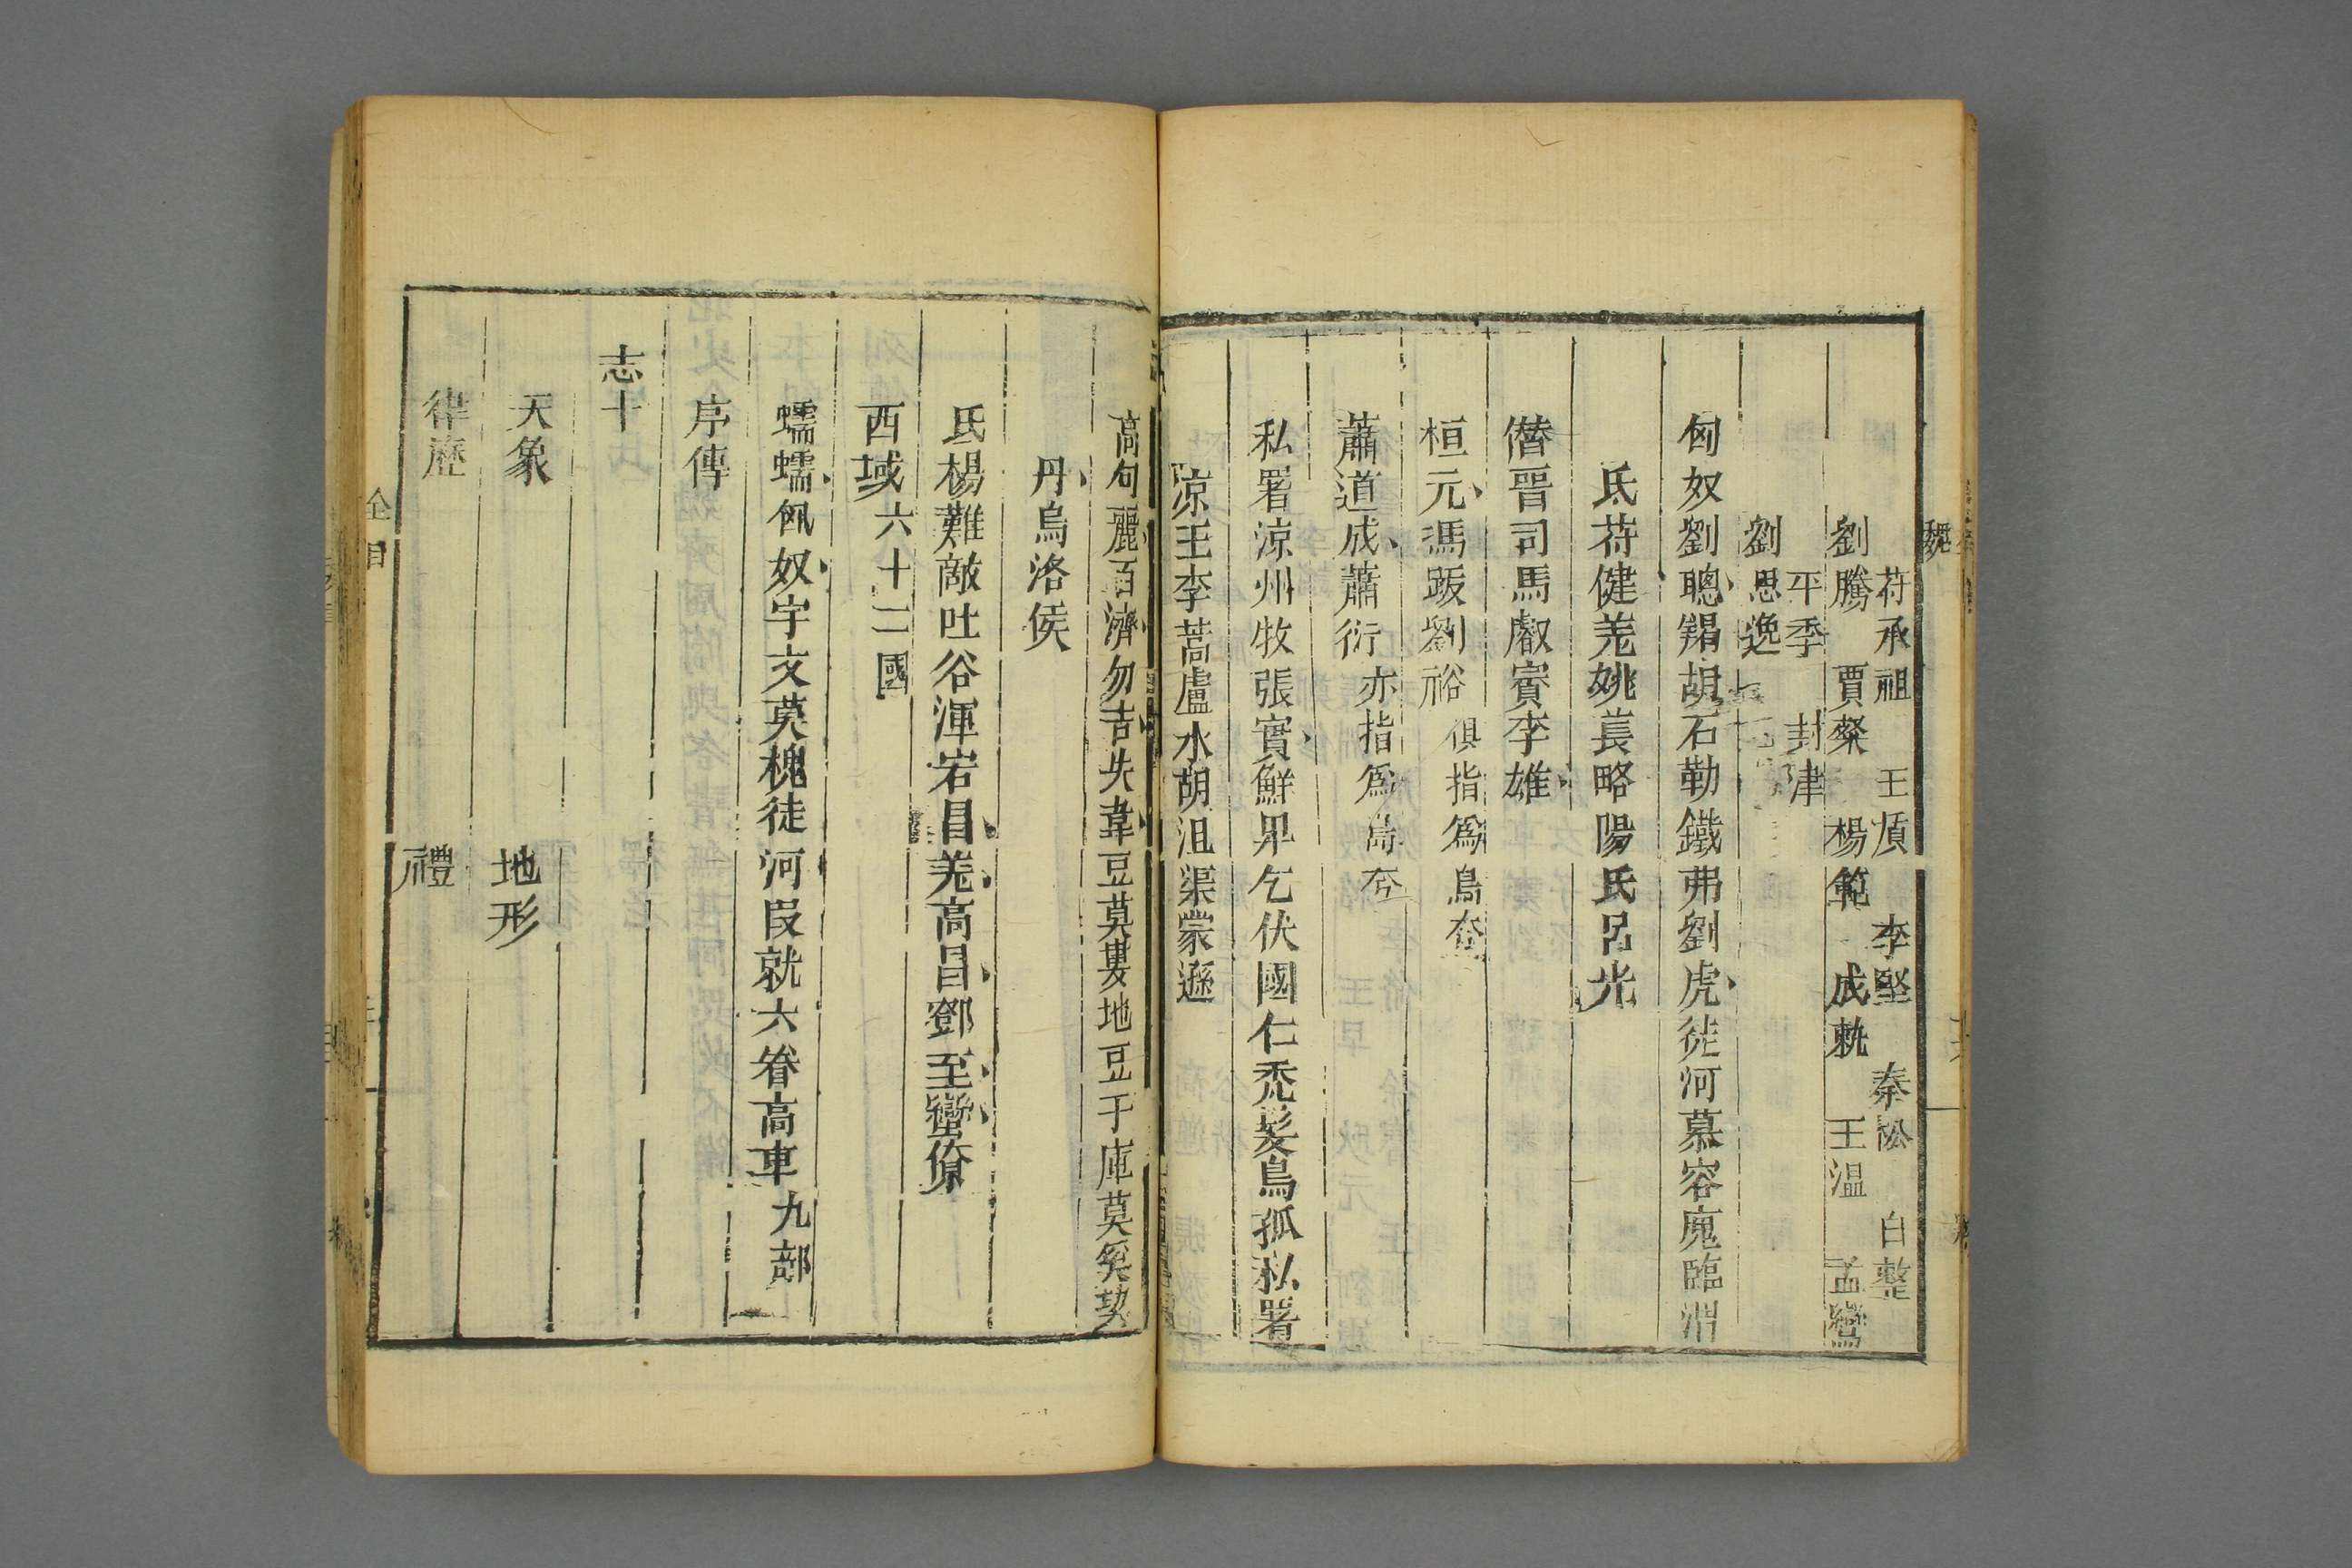 魏
苻承祖　王質　李堅　秦松　白整
劉騰　賈粲　楊範　成軌　王溫　孟鸞
平季　封津
劉思逸
匈奴劉聰羯胡石勒鐵弗劉虎徒河慕容廆臨渭
氐苻健羌姚萇略陽氐呂光
僭晉司馬叡賨李雄
桓元馮跋劉裕俱指爲島夷
蕭道成蕭衍亦指爲島夷
私署涼州牧張寔鮮卑乞伏國仁禿髮烏孤私署
涼王李暠盧水胡沮渠蒙遜
高句麗百濟勿吉失韋豆莫婁地豆于庫莫奚契
丹烏洛侯
氐楊難敵吐谷渾宕昌羌高昌鄧至蠻獠
西域六十二國
蠕蠕匈奴宇文莫槐徒河段就六眷高車九部
序傳
志十
天象　地形
律歷　禮
全目